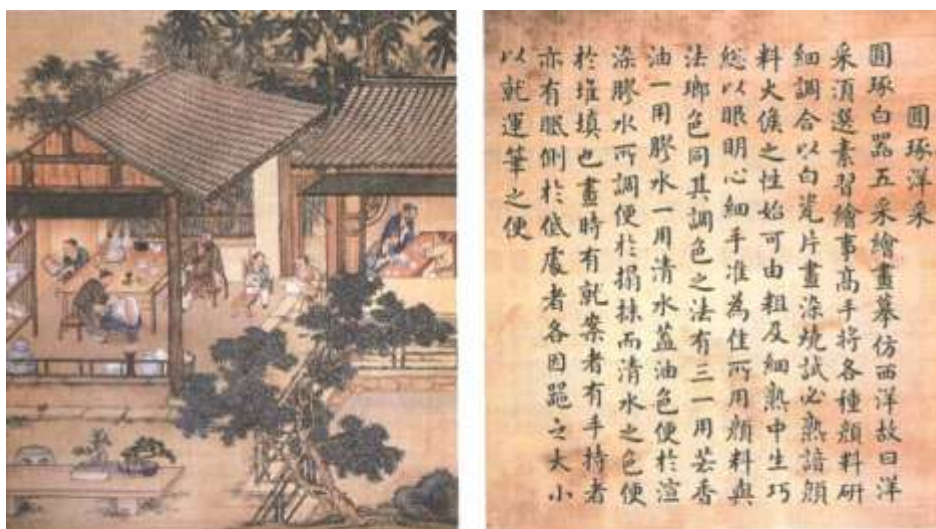 圓琢洋采
圓琢白器五采繪畫摹仿西洋故曰洋
采須選素習繪事高手將各種顏料研
細調合以白瓷片畫染燒試必熟諳顏
料火候之性始可由粗及細熟中生巧
總以眼明心細手准為佳所用顏料與
法瑯色同其調色之法有三一用芸香
油一用膠水一用清水蓋油色便於渲
染膠水所調便於搨抹而清水之色便
於堆填也畫時有就案者有手持者
亦有眠側於低處者各因器之大小
以就運筆之便